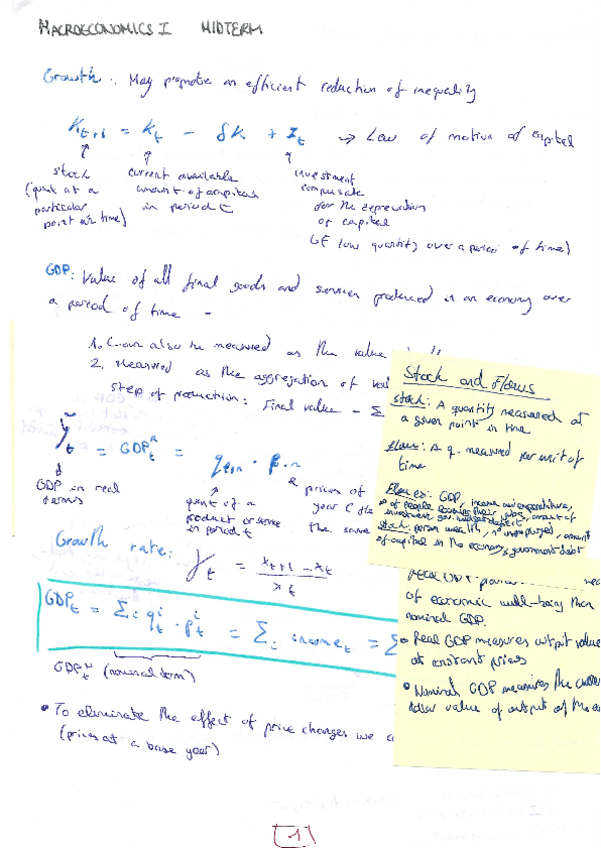 MACROECONOMICS I MIDTERM
Growth: May promote an efficient reduction of inequality
K_{t+1} = K_t - δK + I_t → Law of motion of capital
stock (quant at a particular point in time)
current available amount of capital in period t
investment compensate for the depreciation of capital
(quantity over a period of time)
GDP: Value of all final goods and services produced in an economy over
a period of time
1. Can also be measured as the value
2. Measured as the aggregation of
step of production: Final value - Σ
= GDP_t^R =
GDP in real terms
quant of a product or service in period t
prices of year
the same
Growth rate: γ_t = (x_{t+1} - x_t) / x_t
GDP_t = Σ_i q_t^i · p_t^i = Σ_i income_t = Σ
GDP_t^N (nominal term)
• To eliminate the effect of price changes we
(prices at a base year)
Stock and Flows
stock: A quantity measured at
a given point in time
flow: A q. measured per unit of
time
Flow ex: GDP, income and expenditure,
nº of people losing their jobs, amount of
investment, gov. budget deficit
stock: person wealth, nº unemployed, amount
of capital in the economy, government debt
of economic well-being than
nominal GDP.
• Real GDP measures output value
at constant prices
• Nominal GDP measures the current
dollar value of output of the
1